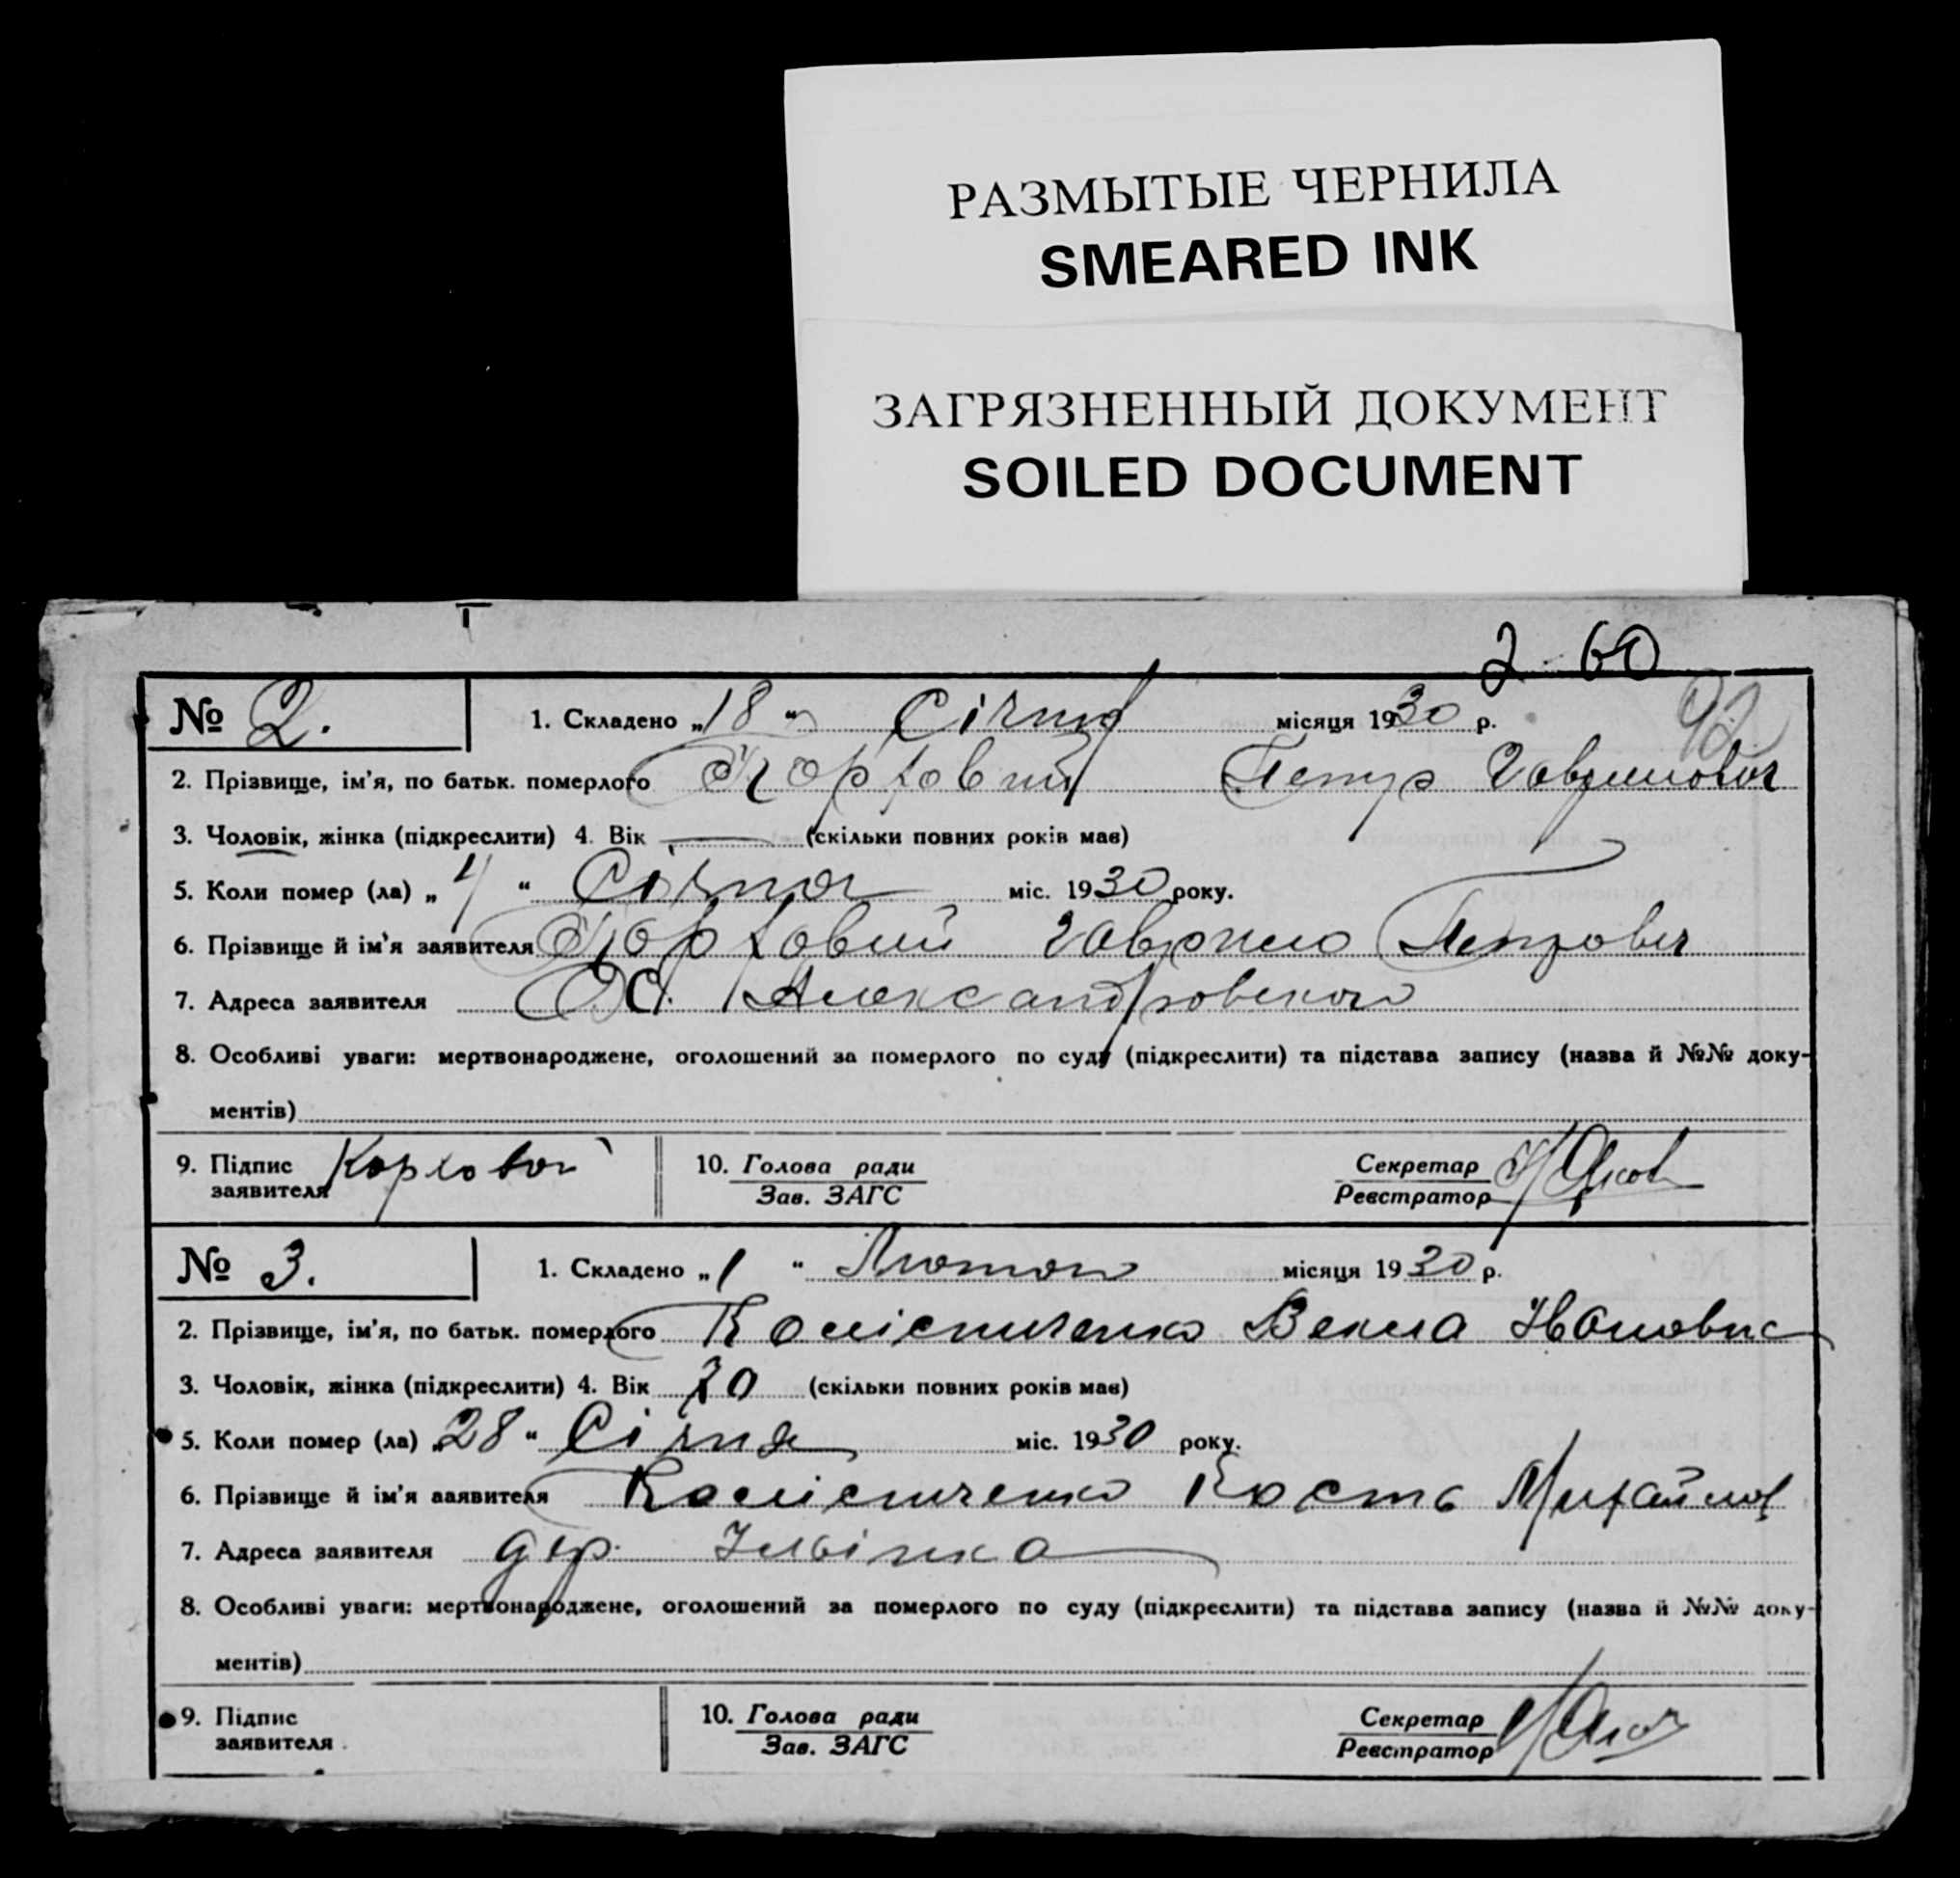 РАЗМЫТЫЕ ЧЕРНИЛА
SMEARED INK
ЗАГРЯЗНЕННЫЙ ДОКУМЕНТ
SOILED DOCUMENT
2 60
92
№ 2. 1. Складено „18“ Січня місяця 1930 р.
2. Прізвище, ім'я, по батьк. померлого Петро Гаврилович
3. Чоловік, жінка (підкреслити) 4. Вік — (скільки повних років має)
5. Коли помер (ла) „ “ Січня міс. 1930 року.
6. Прізвище й ім'я заявителя Гаврило Петрович
7. Адреса заявителя
8. Особливі уваги: мертвонароджене, оголошений за померлого по суду (підкреслити) та підстава запису (назва й №№ доку-
ментів)
9. Підпис заявителя 10. Голова ради Секретар
Зав. ЗАГС Реєстратор
№ 3. 1. Складено „1“ Лютого місяця 1930 р.
2. Прізвище, ім'я, по батьк. померлого Векла Івановна
3. Чоловік, жінка (підкреслити) 4. Вік (скільки повних років має)
5. Коли помер (ла) „28“ Січня міс. 1930 року.
6. Прізвище й ім'я заявителя Кость Михайлов
7. Адреса заявителя дер. Ільінка
8. Особливі уваги: мертвонароджене, оголошений за померлого по суду (підкреслити) та підстава запису (назва й №№ доку-
ментів)
9. Підпис заявителя 10. Голова ради Секретар
Зав. ЗАГС Реєстратор